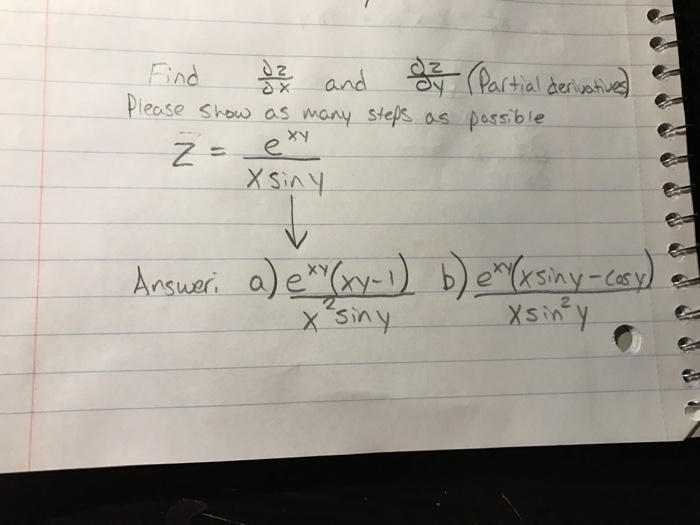 Find ∂z/∂x and ∂z/∂y (Partial derivatives)
Please show as many steps as possible
z = e^xy / x sin y
↓
Answer: a) e^xy(xy-1) / x^2 sin y b) e^xy(x sin y - cos y) / x sin^2 y